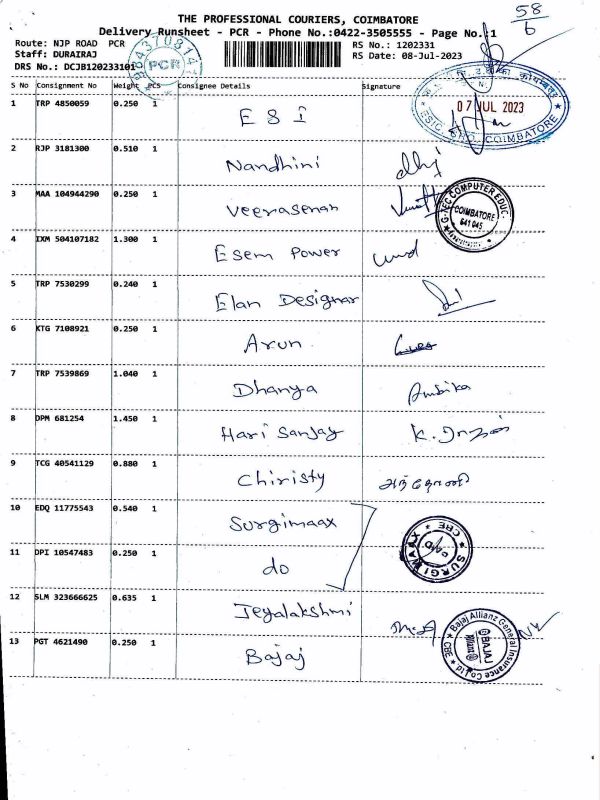 58
6
THE PROFESSIONAL COURIERS, COIMBATORE
Delivery Runsheet - PCR - Phone No.:0422-3505555 - Page No.:1
Route: NJP ROAD PCR
RS No.: 1202331
Staff: DURAIRAJ
RS Date: 08-Jul-2023
DRS No.: DCJB120233101
PCR
S No Consignment No Weight PCS Consignee Details Signature
07 JUL 2023
COIMBATORE
1 TRP 4850059 0.250 1 ESI
2 RJP 3181300 0.510 1 Nandhini
3 MAA 104944290 0.250 1 Veerasenan
G-TEC COMPUTER EDUC.
COIMBATORE
641 045
4 IXM 504107182 1.300 1 Esem Power
5 TRP 7530299 0.240 1 Elan Designar
6 KTG 7108921 0.250 1 Arun
7 TRP 7539869 1.040 1 Dhanya Ambika
8 DPM 681254 1.450 1 Hari Sanjay
9 TCG 40541129 0.880 1 Chiristy அந்தோணி
10 EDQ 11775543 0.540 1 Surgimaax
SURGIMAXX CBE
11 DPI 10547483 0.250 1 do
12 SLM 323666625 0.635 1 Jeyalakshmi
13 PGT 4621490 0.250 1 Bajaj
Bajaj Allianz General Insurance Co Ltd
CBE
BAJAJ
Allianz